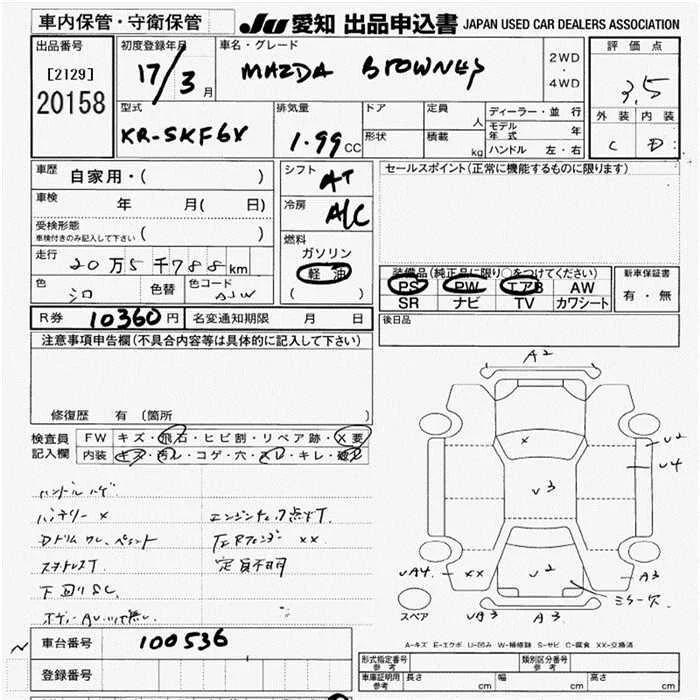 車内保管・守衛保管
JU 愛知 出品申込書 JAPAN USED CAR DEALERS ASSOCIATION
出品番号
[2129]
20158
初度登録年月
17/3月
車名・グレード
MAZDA BROWNEY
2WD
・
4WD
評価点
3.5
外装 内装
C D
型式
KR-SKF6V
排気量
1.99CC
ドア
形状
定員 人
積載 kg
ディーラー・並行
モデル年式 年
ハンドル 左・右
車歴 自家用・( )
車検 年 月( 日)
受検形態
車検付きのみ記入して下さい ( )
走行 20万5千788km
色 シロ 色替 色コード
シフト AT
冷房 A/C
燃料
ガソリン
軽油
( )
セールスポイント(正常に機能するものに限ります)
装備品(純正品に限り○をつけてください)
PS PW エアB AW
SR ナビ TV カワシート
新車保証書
有・無
R券 10360円 名変通知期限 月 日
後日品
注意事項申告欄(不具合内容等は具体的に記入して下さい)
修復歴 有 〔箇所 〕
検査員記入欄
FW キズ・飛石・ヒビ割・リペア跡・X要
内装 キズ・汚レ・コゲ・穴・スレ・キレ・破レ
ハンドルハゲ
バッテリー×
エンジンチェック点灯
スタッドレス
左Rフェンダー ××
定員不明
下回りSC
A2
X
V3
U2
U4
V2
UA4
××
A3
ミラー欠
UA3
A3
スペア
A-キズ E-エクボ U-凹み W-補修跡 S-サビ C-腐食 XX-交換済
車台番号 100536
登録番号
形式指定番号 参考
類別区分番号 参考
車庫証明用 参考 長さ cm 幅 cm 高さ cm